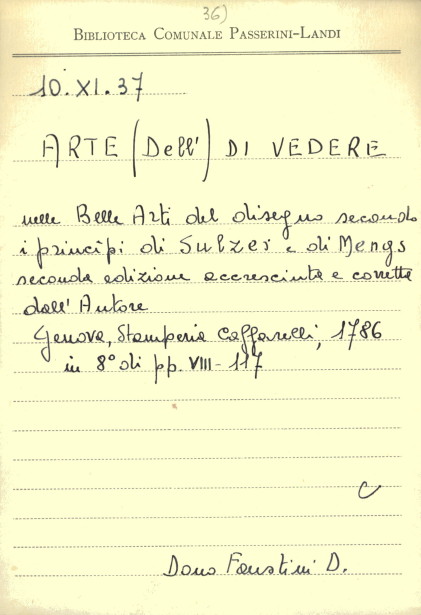 36)
BIBLIOTECA COMUNALE PASSERINI-LANDI
10.XI.37
ARTE (Dell') DI VEDERE
nelle Belle Arti del disegno secondo
i principi di Sulzer e di Mengs
seconda edizione accresciuta e corretta
dall'Autore
Genova, Stamperia Caffarelli, 1786
in 8° di pp. VIII-117
C
Dono Faustini D.